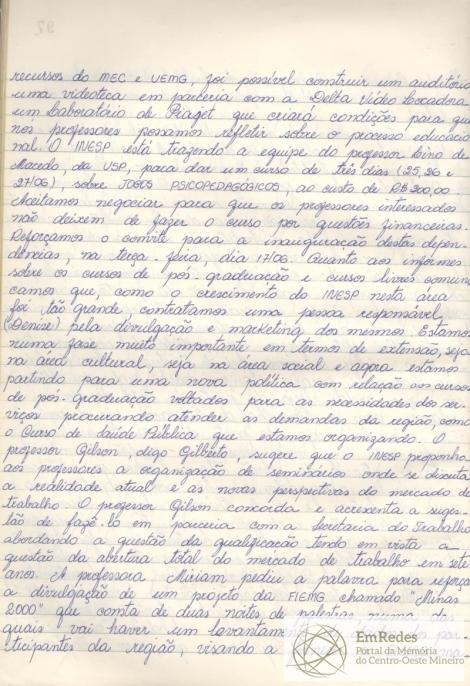 recursos do MEC e UEMG, foi possível construir um auditório
uma videoteca em parceria com a Delta Vídeo Locadora
um Laboratório de Piaget que criará condições para que
nos professores possamos refletir sobre o processo educacio
nal. O INESP está trazendo a equipe do professor Lino de
Macedo, da USP, para dar um curso de três dias (25, 26 e
27/06), sobre JOGOS PSICOPEDAGÓGICOS, ao custo de R$ 200,00.
Aceitamos negociar para que os professores interessados
não deixem de fazer o curso por questões financeiras.
Reforçamos o convite para a inauguração destas depen-
dências, na terça-feira, dia 17/06. Quanto aos informes
sobre os cursos de pós-graduação e cursos livres comuni
camos que, como o crescimento do INESP nesta área
foi tão grande, contratamos uma pessoa responsável,
(Denise) pela divulgação e marketing dos mesmos. Estamos
numa fase muito importante em termos de extensão, seja
na área cultural, seja na área social e agora estamos
partindo para uma nova política com relação aos cursos
de pós-graduação voltados para as necessidades dos ser-
viços procurando atender as demandas da região, como
o Curso de Saúde Pública que estamos organizando. O
professor Gilson, digo Gilberto, sugere que o INESP proponha
aos professores a organização de seminários onde se discuta
a realidade atual e as novas perspectivas do mercado de
trabalho. O professor Gilson concorda e acrescenta a suges-
tão de fazê-lo em parceria com a Secretaria do Trabalho
abordando a questão da qualificação tendo em vista a
questão da abertura total do mercado de trabalho em sete
anos. A professora Miriam pediu a palavra para reforçar
a divulgação de um projeto da FIEMG chamado "Minas
2000" que consta de duas noites de palestras, numa das
quais vai haver um levantamento par-
ticipantes da região, visando a
EmRedes
Portal da Memória
do Centro-Oeste Mineiro